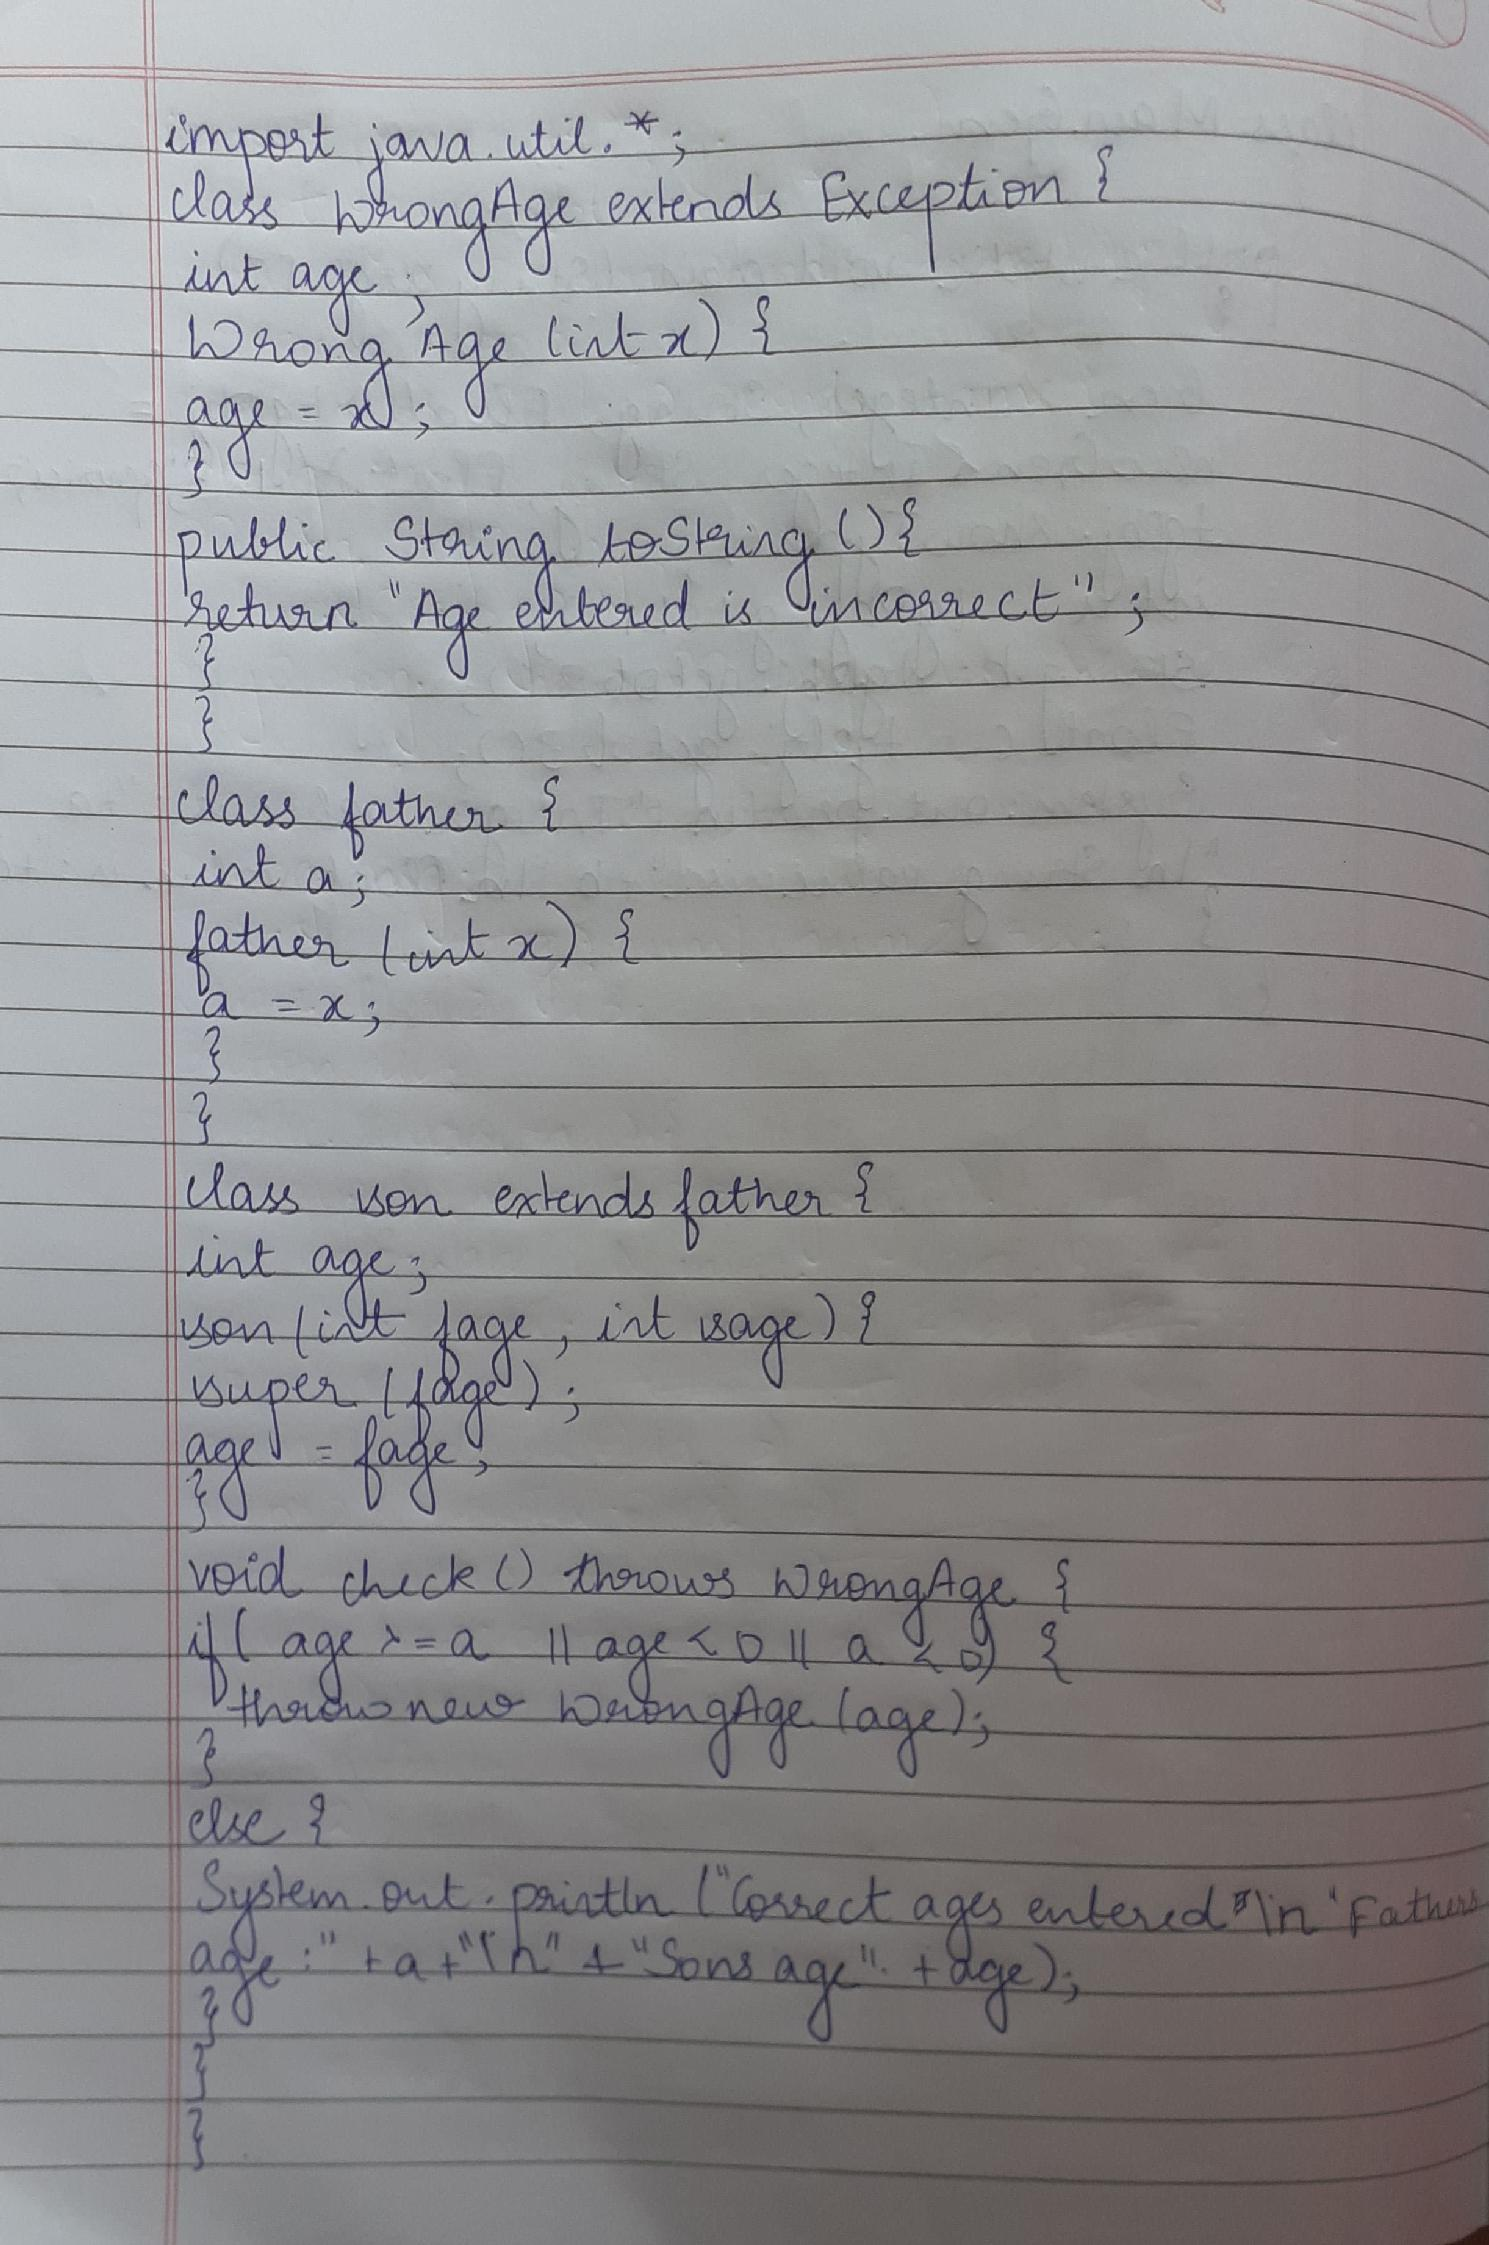 import java.util.*;
class WrongAge extends Exception {
int age;
Wrong Age (int x) {
age = x;
}
public String toString () {
return "Age entered is incorrect";
}
}
class father {
int a;
father (int x) {
a = x;
}
}
class son extends father {
int age;
son (int fage, int sage) {
super (fage);
age = fage;
}
void check () throws WrongAge {
if ( age >= a || age < 0 || a < 0) {
throw new WrongAge (age);
}
else {
System.out.println ("Correct ages entered \n Fathers
age :" + a + "\n" + "Sons age" + age);
}
}
}